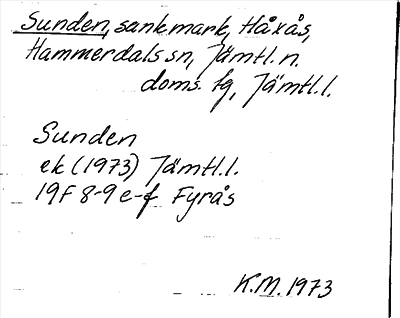 Sunden, sankmark, Håxås,
Hammerdals sn, Jämtl. n.
doms. fg, Jämtl. l.
Sunden
ek (1973) Jämtl. l.
19F 8-9 e-f Fyrås
K.M. 1973